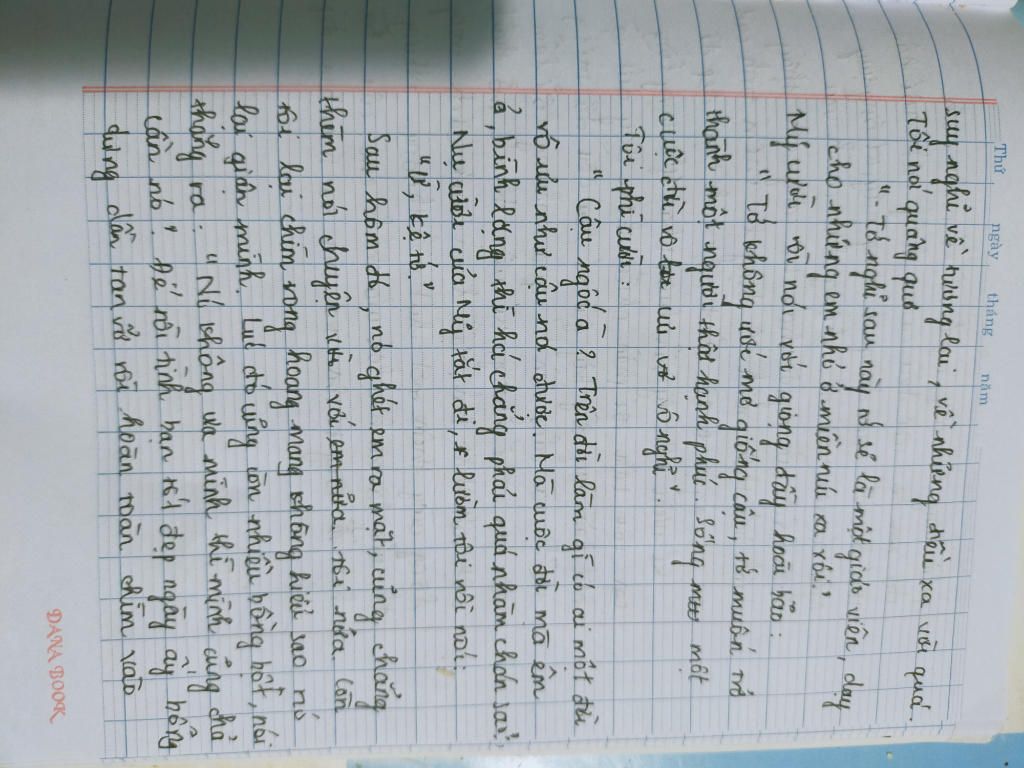 Thứ ngày tháng năm
suy nghĩ về tương lai, về những điều xa vời quá.
Tôi nói quâng quơ
"- Tớ nghĩ sau này tớ sẽ là một giáo viên, dạy
cho những em nhỏ ở miền núi xa xôi."
Ny cười rồi nói với giọng đầy hoài bão:
" Tớ không mơ giống cậu, tớ muốn trở
thành một người thật hạnh phúc. Sống một
cuộc đời vô ưu vô nghĩ".
Tôi phì cười:
" Cậu ngốc à? Trên đời làm gì có ai một đời
vô ưu như cậu nói được. Mà cuộc đời mà êm
ả, bình lặng thì há chẳng phải quá nhàm chán sao",
Nụ cười của Ny tắt đi, lườm tôi rồi nói:
"Ừ, kệ tớ."
Sau hôm đó, nó ghét em ra mặt, cũng chẳng
thèm nói chuyện với tôi nữa. Còn
tôi lại chìm trong hoang mang không hiểu sao nó
lại giận mình. Lúc đó cũng còn nhiều bồng bột, nói
thẳng ra: "Ní không ưa mình thì mình cũng chả
cần nó". Để rồi tình bạn rất đẹp ngày ấy bỗng
dưng dần tan vỡ rồi hoàn toàn chìm vào
DANA BOOK